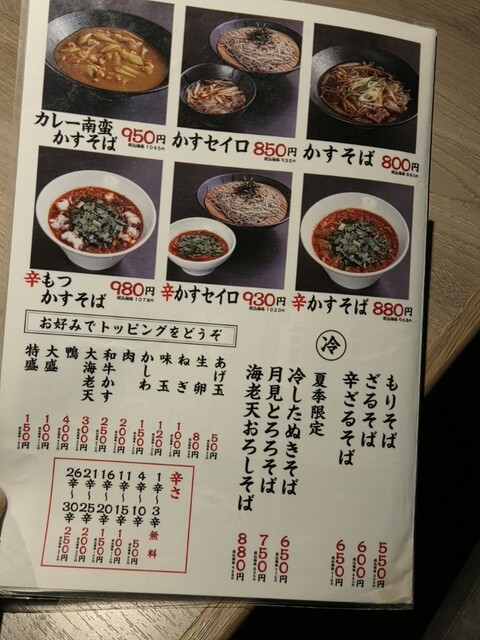 カレー南蛮
かすそば 950円
税込価格 1045円
かすセイロ 850円
税込価格 935円
かすそば 800円
税込価格 880円
辛もつ
かすそば 980円
税込価格 1078円
辛かすセイロ 930円
税込価格 1023円
辛かすそば 880円
税込価格 968円
お好みでトッピングをどうぞ
冷
もりそば 550円
ざるそば 600円
辛ざるそば 650円
夏季限定
冷したぬきそば 650円
月見とろろそば 750円
海老天おろしそば 880円
あげ玉 50円
生卵 80円
ねぎ 100円
味玉 120円
かしわ 150円
肉 200円
和牛かす 250円
大海老天 300円
鴨 400円
大盛 100円
特盛 150円
辛さ
1辛〜3辛 無料
4辛〜10辛 50円
11辛〜15辛 100円
16辛〜20辛 150円
21辛〜25辛 200円
26辛〜30辛 250円